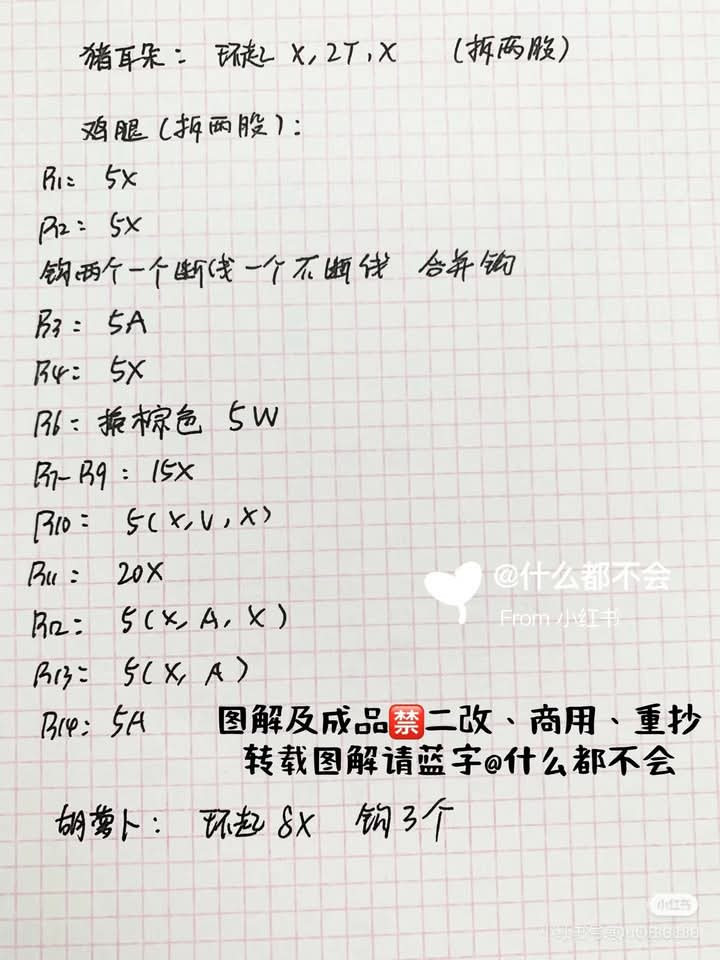 猪耳朵： 环起 X, 2T, X （拆两股）
鸡腿（拆两股）：
R1： 5X
R2： 5X
钩两个一个断线一个不断线 合并钩
R3： 5A
R4： 5X
R6： 换棕色 5W
R7-R9： 15X
R10： 5(X, V, X)
R11： 20X
R12： 5(X, A, X)
R13： 5(X, A)
R14： 5A
@什么都不会
From 小红书
图解及成品禁二改、商用、重抄
转载图解请蓝字@什么都不会
胡萝卜： 环起 8X 钩3个
小红书